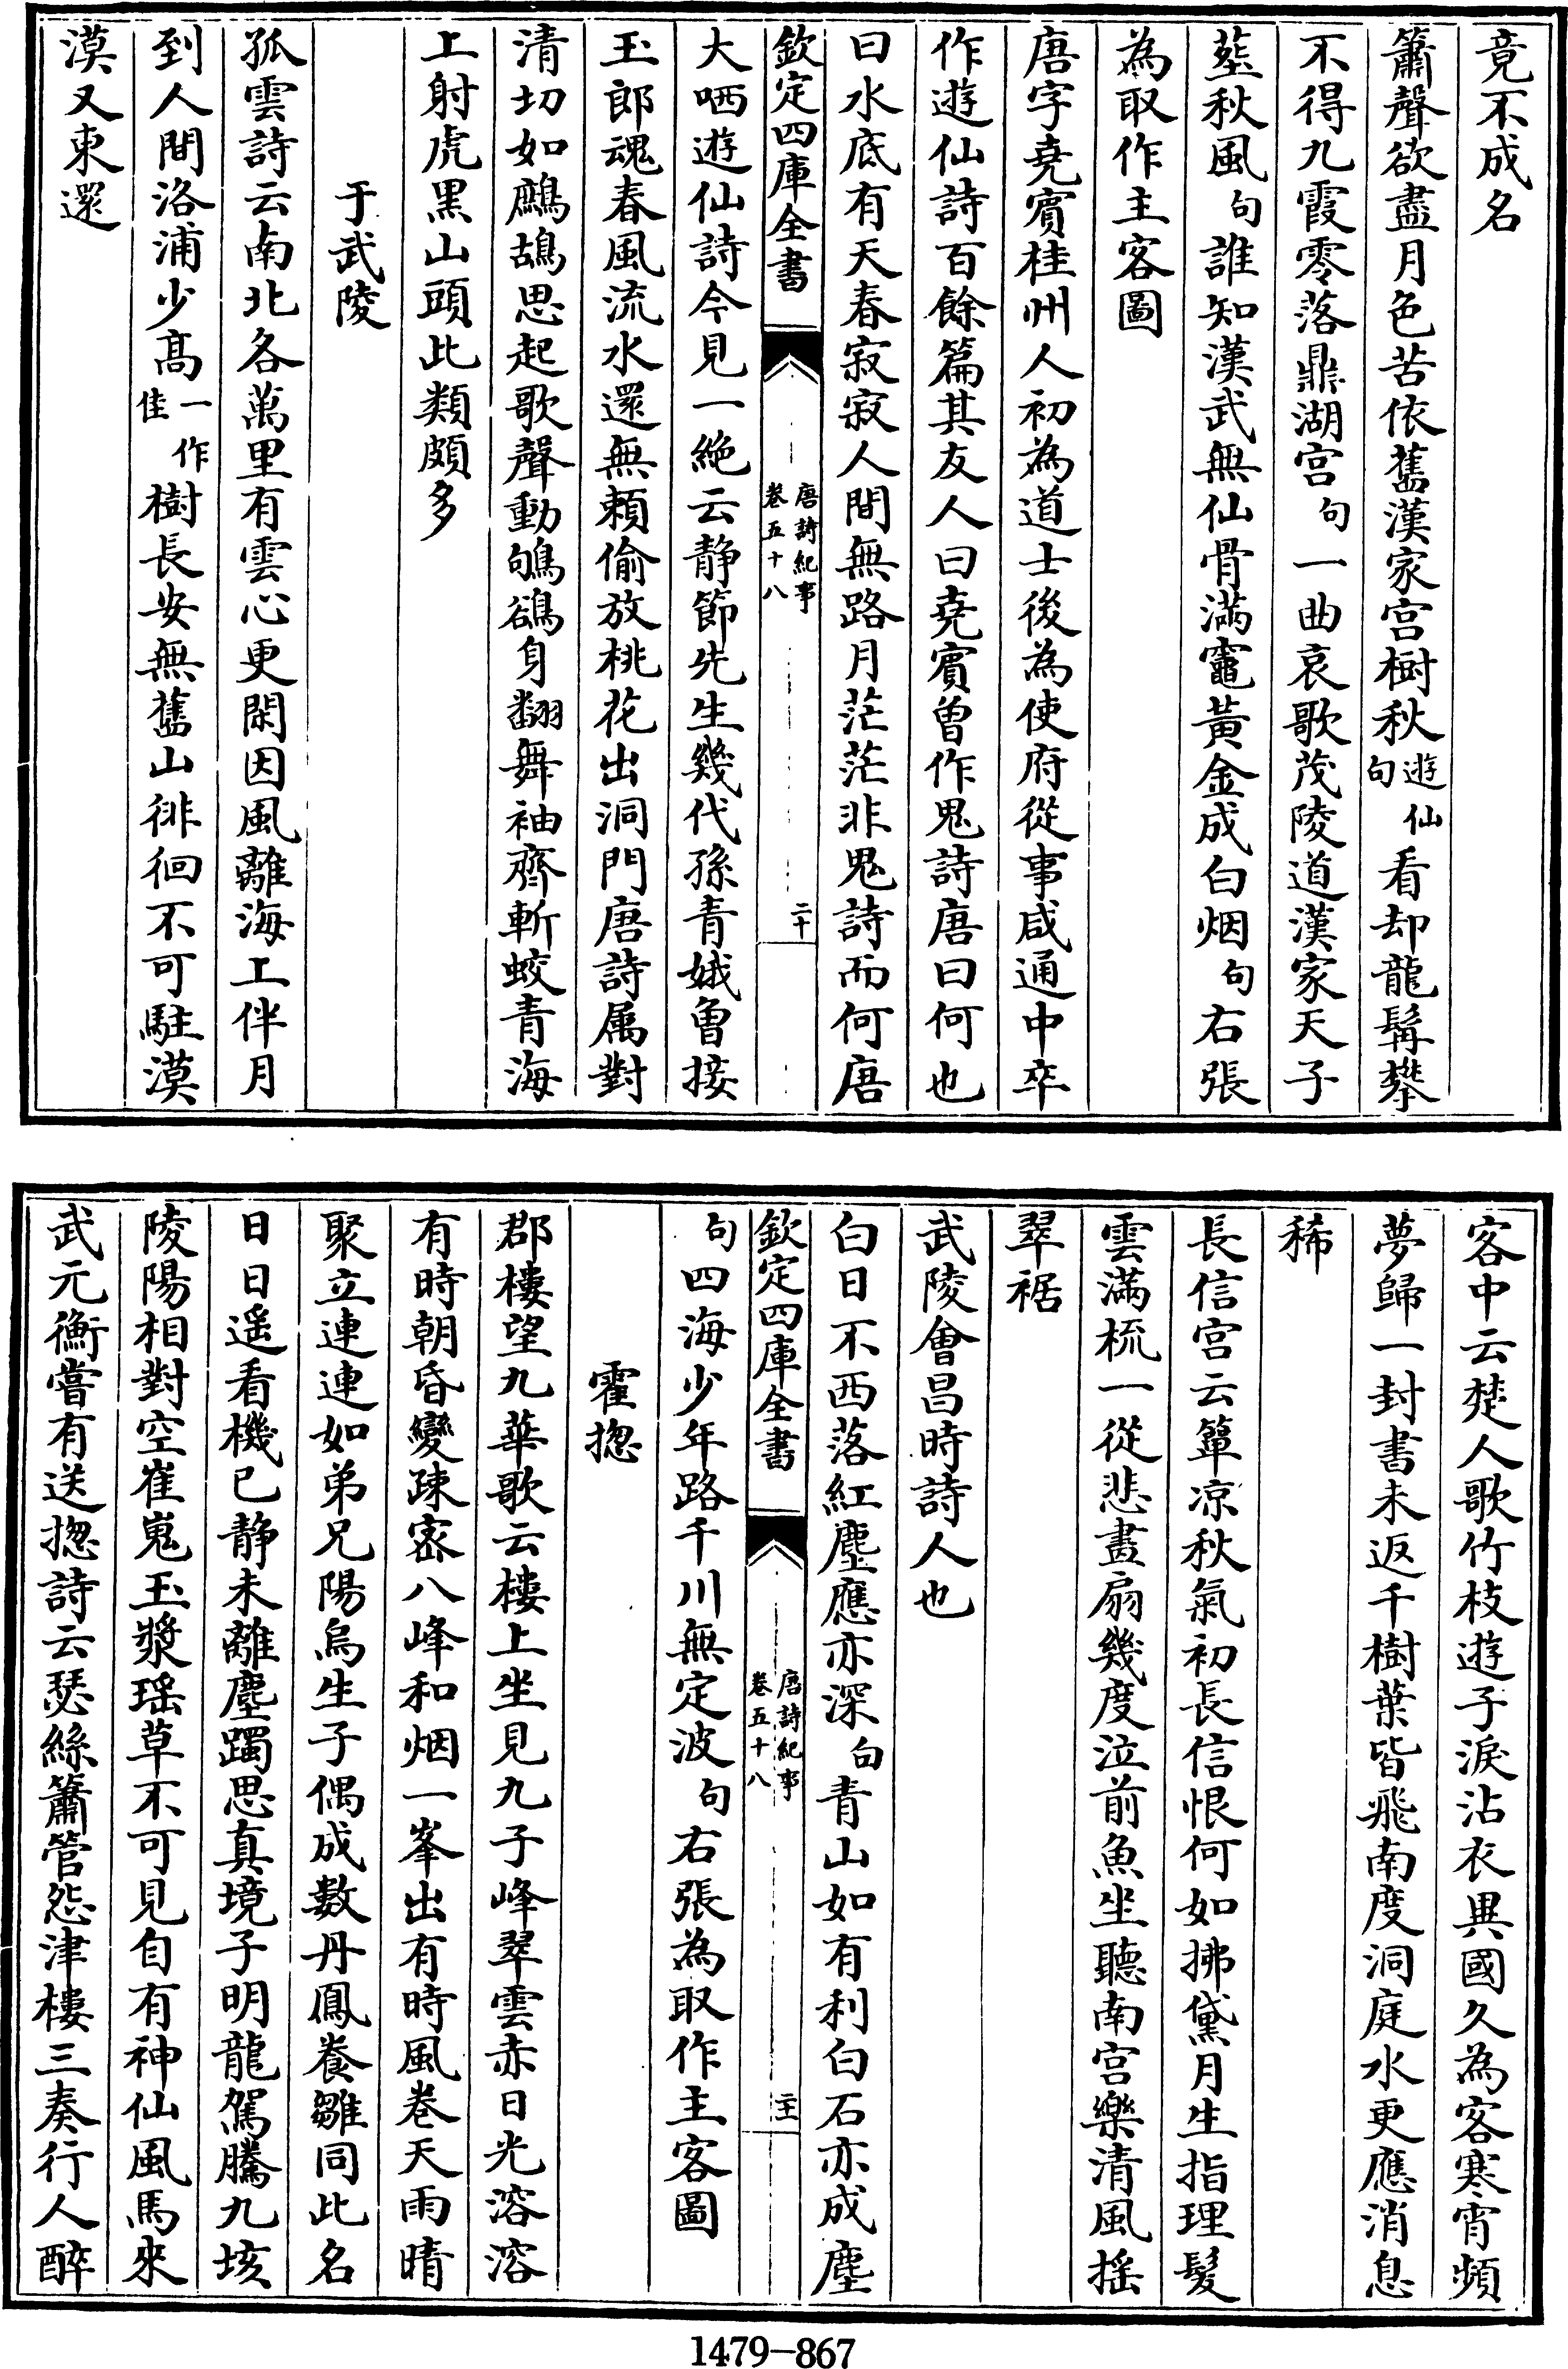 竟不成名
簫聲欲盡月色苦依舊漢家宫樹秋遊仙句看却龍髯攀
不得九霞零落鼎湖宫句一曲哀歌茂陵道漢家天子
塟秋風句誰知漢武無仙骨滿竈黃金成白烟句右張
為取作主客圖
唐字堯賓桂州人初為道士後為使府從事咸通中卒
作遊仙詩百餘篇其友人曰堯賓曾作鬼詩唐曰何也
曰水底有天春寂寂人間無路月茫茫非鬼詩而何唐
欽定四庫全書
唐詩紀事
卷五十八
二十
大哂遊仙詩今見一絶云静節先生幾代孫青娥曾接
玉郎魂春風流水還無頼偷放桃花出洞門唐詩属對
清切如鷓鴣思起歌聲動鴝鵒身翻舞袖齊斬蛟青海
上射虎黑山頭此類頗多
于武陵
孤雲詩云南北各萬里有雲心更閑因風離海上伴月
到人間洛浦少髙一作佳樹長安無舊山徘徊不可駐漠
漠又東還
客中云楚人歌竹枝遊子淚沾衣異國久為客寒宵頻
夢歸一封書未返千樹葉皆飛南度洞庭水更應消息
稀
長信宫云簟凉秋氣初長信恨何如拂黛月生指理髮
雲滿梳一從悲畫扇幾度泣前魚坐聽南宫樂清風摇
翠裾
武陵會昌時詩人也
白日不西落紅塵應亦深句青山如有利白石亦成塵
欽定四庫全書
唐詩紀事
卷五十八
二十一
句四海少年路千川無定波句右張為取作主客圖
霍揔
郡樓望九華歌云樓上坐見九子峰翠雲赤日光溶溶
有時朝昏變疎宻八峰和烟一峯出有時風卷天雨晴
聚立連連如弟兄陽烏生子偶成數丹鳳養雛同此名
日日遥看機已静未離塵躅思真境子明龍駕騰九垓
陵陽相對空崔嵬玉漿瑶草不可見自有神仙風馬來
武元衡嘗有送揔詩云瑟絲簫管怨津樓三奏行人醉
1479-867